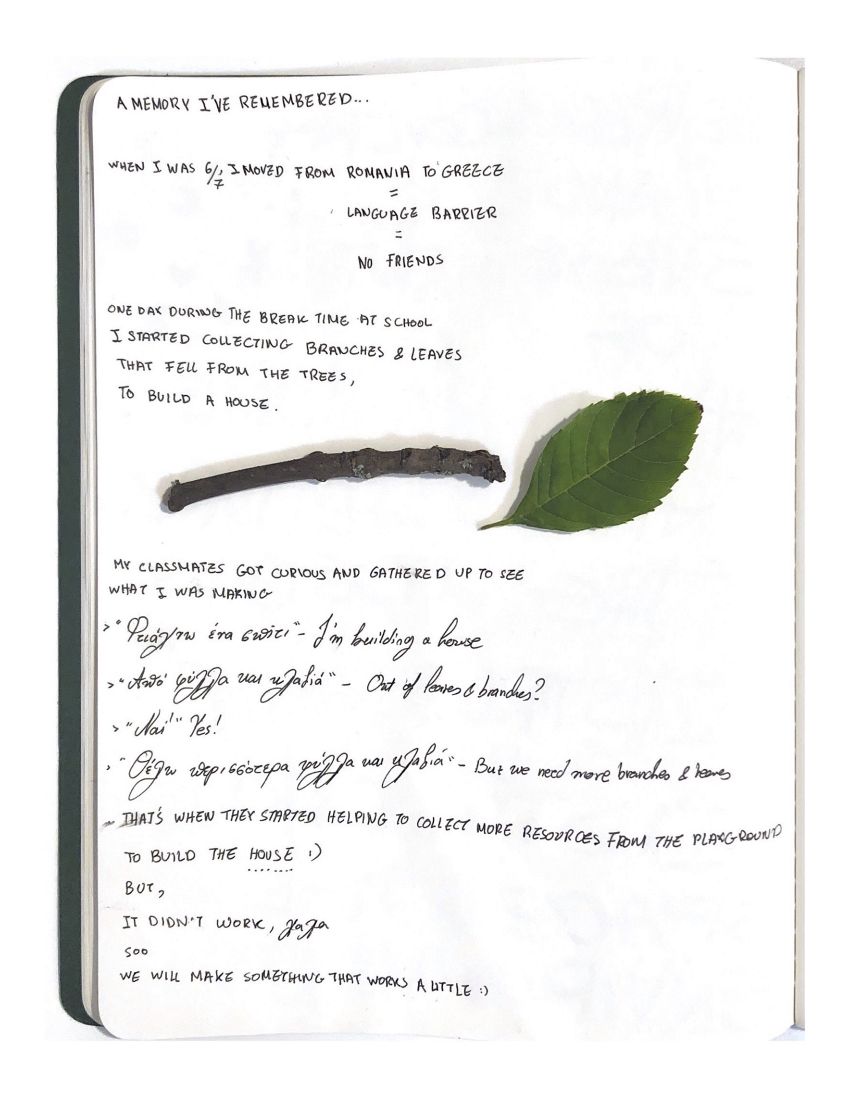 A MEMORY I'VE REMEMBERED...
WHEN I WAS 6/7, I MOVED FROM ROMANIA TO GREECE
=
LANGUAGE BARRIER
=
NO FRIENDS
ONE DAY DURING THE BREAK TIME AT SCHOOL
I STARTED COLLECTING BRANCHES & LEAVES
THAT FELL FROM THE TREES,
TO BUILD A HOUSE.
MY CLASSMATES GOT CURIOUS AND GATHERED UP TO SEE
WHAT I WAS MAKING
>" Φτιάχνω ένα σπίτι" - I'm building a house
>"Από φύλλα και κλαδιά" - Out of leaves & branches?
> "Ναι!" Yes!
> "Θέλω περισσότερα φύλλα και κλαδιά" - But we need more branches & leaves
THAT'S WHEN THEY STARTED HELPING TO COLLECT MORE RESOURCES FROM THE PLAYGROUND
TO BUILD THE HOUSE :)
BUT,
IT DIDN'T WORK, χαχα
SOO
WE WILL MAKE SOMETHING THAT WORKS A LITTLE :)